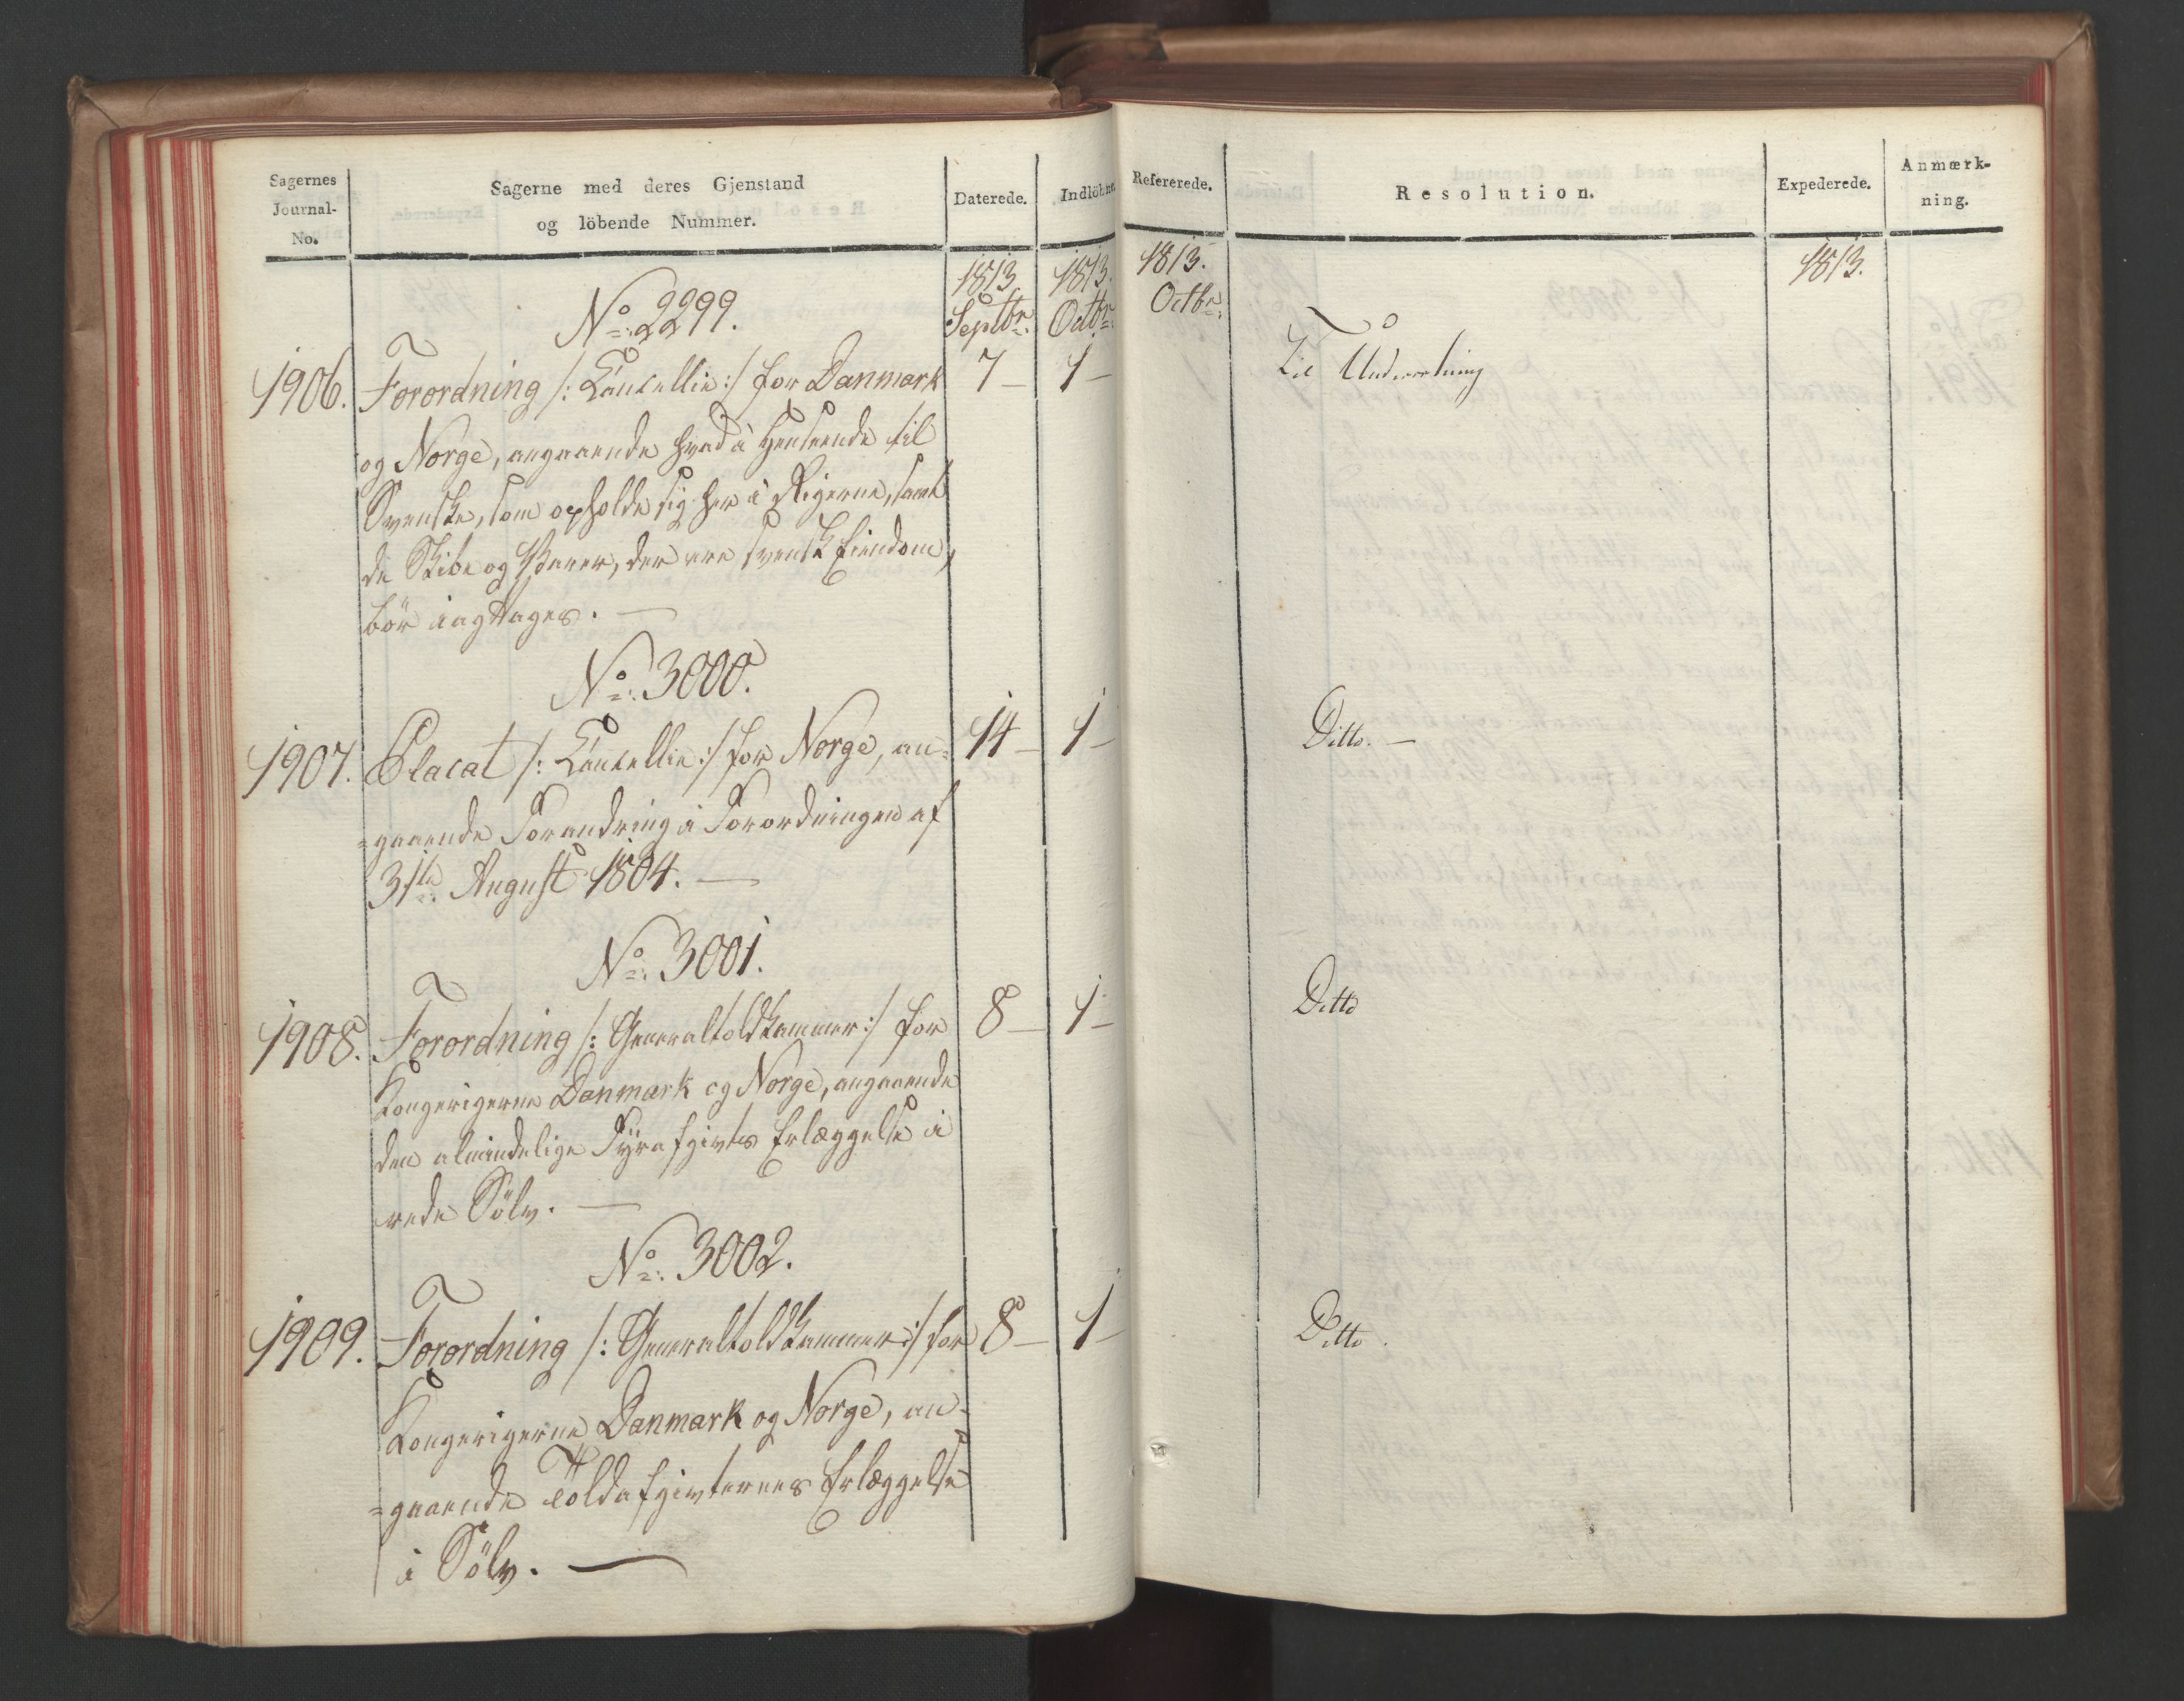 Sagernes
Journal-
No.
Sagerne med deres Gjenstand
og löbende Nummer.
Daterede.
Indlöbne
Refererede.
Resolution.
Expederede.
Anmærk-
ning.
1813
Septbr:
1813.
Octbr:
1813.
Octbr:
1813.
No: 2299.
1906. Forordning /: Cancellie :/ for Danmark 7 - 1 - Til Underretning
og Norge, angaaende hvad i Henseende til
Svenske, som opholde sig her i Rigerne, samt
de Skibe og Varer, der ere svensk Eiendom,
bör iagttages. —
No: 3000.
1907. Placat /: Cancellie :/ for Norge, an= 14 - 1 - Ditto. —
=gaaende Forandring i Forordningen af
31te August 1804. —
No: 3001.
1908. Forordning /: Generaltoldkammer :/ for 8 - 1 - Ditto
Kongerigerne Danmark og Norge, angaaende
den almindelige Fyrafgivts Erlæggelse i
rede Sölv. —
No: 3002.
1909. Forordning /: Generaltoldkammer :/ for 8 - 1 - Ditto.
Kongerigerne Danmark og Norge, an=
=gaaende Toldafgivternes Erlæggelse
i Sölv. —